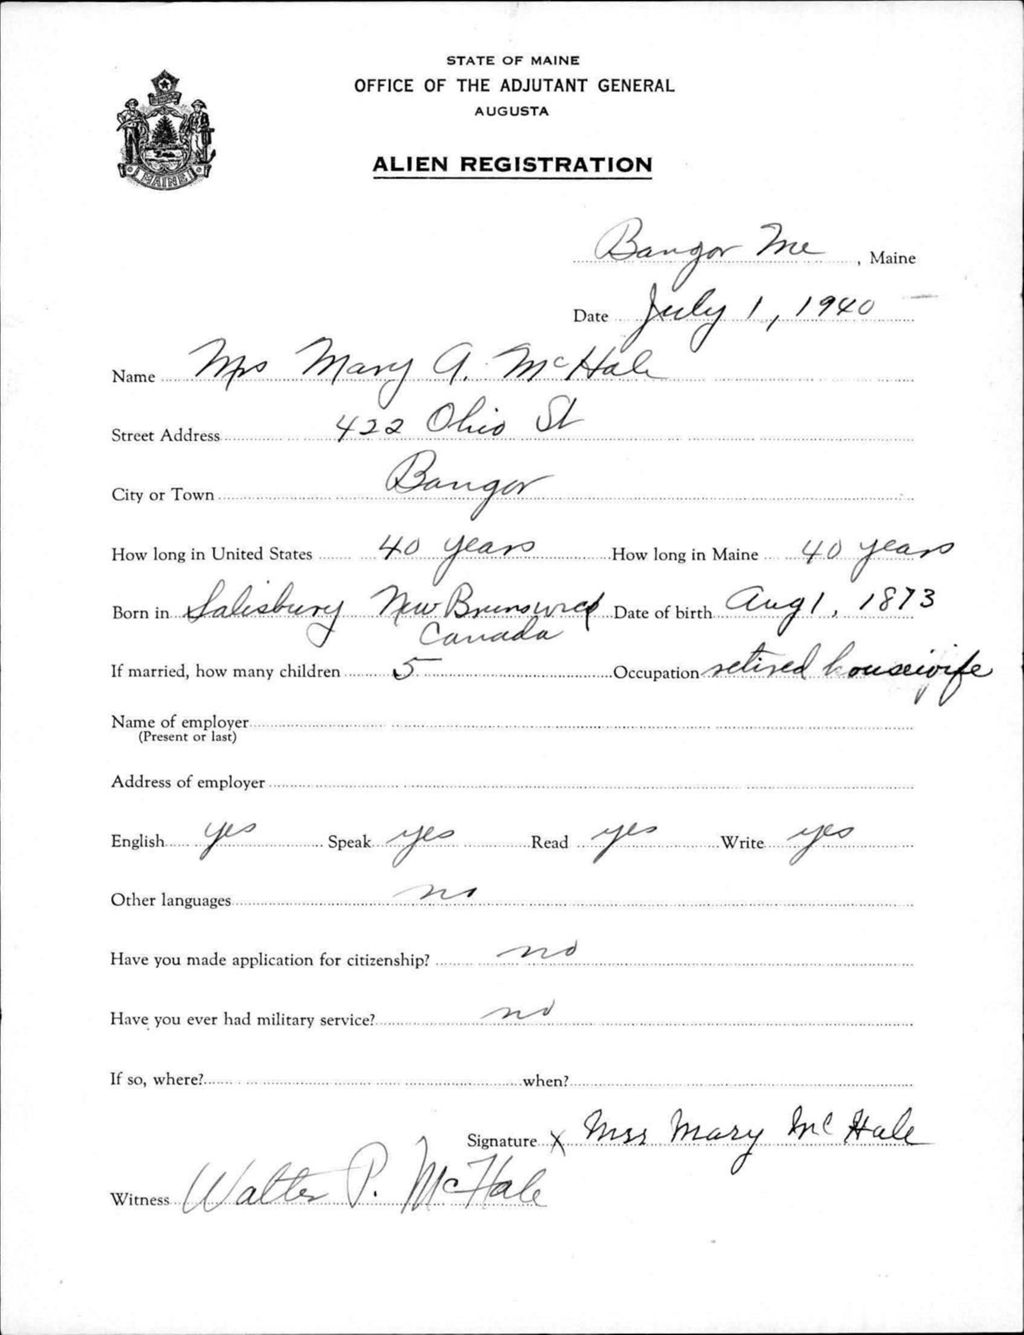 STATE OF MAINE
OFFICE OF THE ADJUTANT GENERAL
AUGUSTA
ALIEN REGISTRATION
MAINE
Bangor Me, Maine
Date July 1, 1940
Name Mrs Mary A. McHale
Street Address 422 Ohio St
City or Town Bangor
How long in United States 40 years How long in Maine 40 years
Born in Salisbury New Brunswick Date of birth Aug 1, 1873
Canada
If married, how many children 5 Occupation retired housewife
Name of employer
(Present or last)
Address of employer
English yes Speak yes Read yes Write yes
Other languages no
Have you made application for citizenship? no
Have you ever had military service? no
If so, where? when?
Signature X Mrs Mary McHale
Witness Walter P. McHale